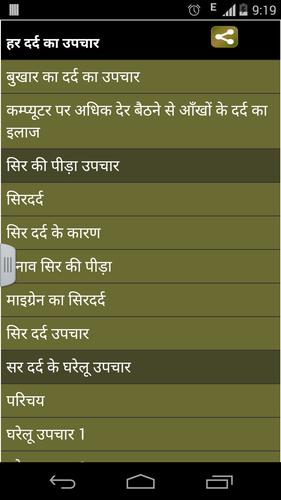 E 9:19
हर दर्द का उपचार
बुखार का दर्द का उपचार
कम्प्यूटर पर अधिक देर बैठने से आँखों के दर्द का
इलाज
सिर की पीड़ा उपचार
सिरदर्द
सिर दर्द के कारण
नाव सिर की पीड़ा
माइग्रेन का सिरदर्द
सिर दर्द उपचार
सर दर्द के घरेलू उपचार
परिचय
घरेलू उपचार 1